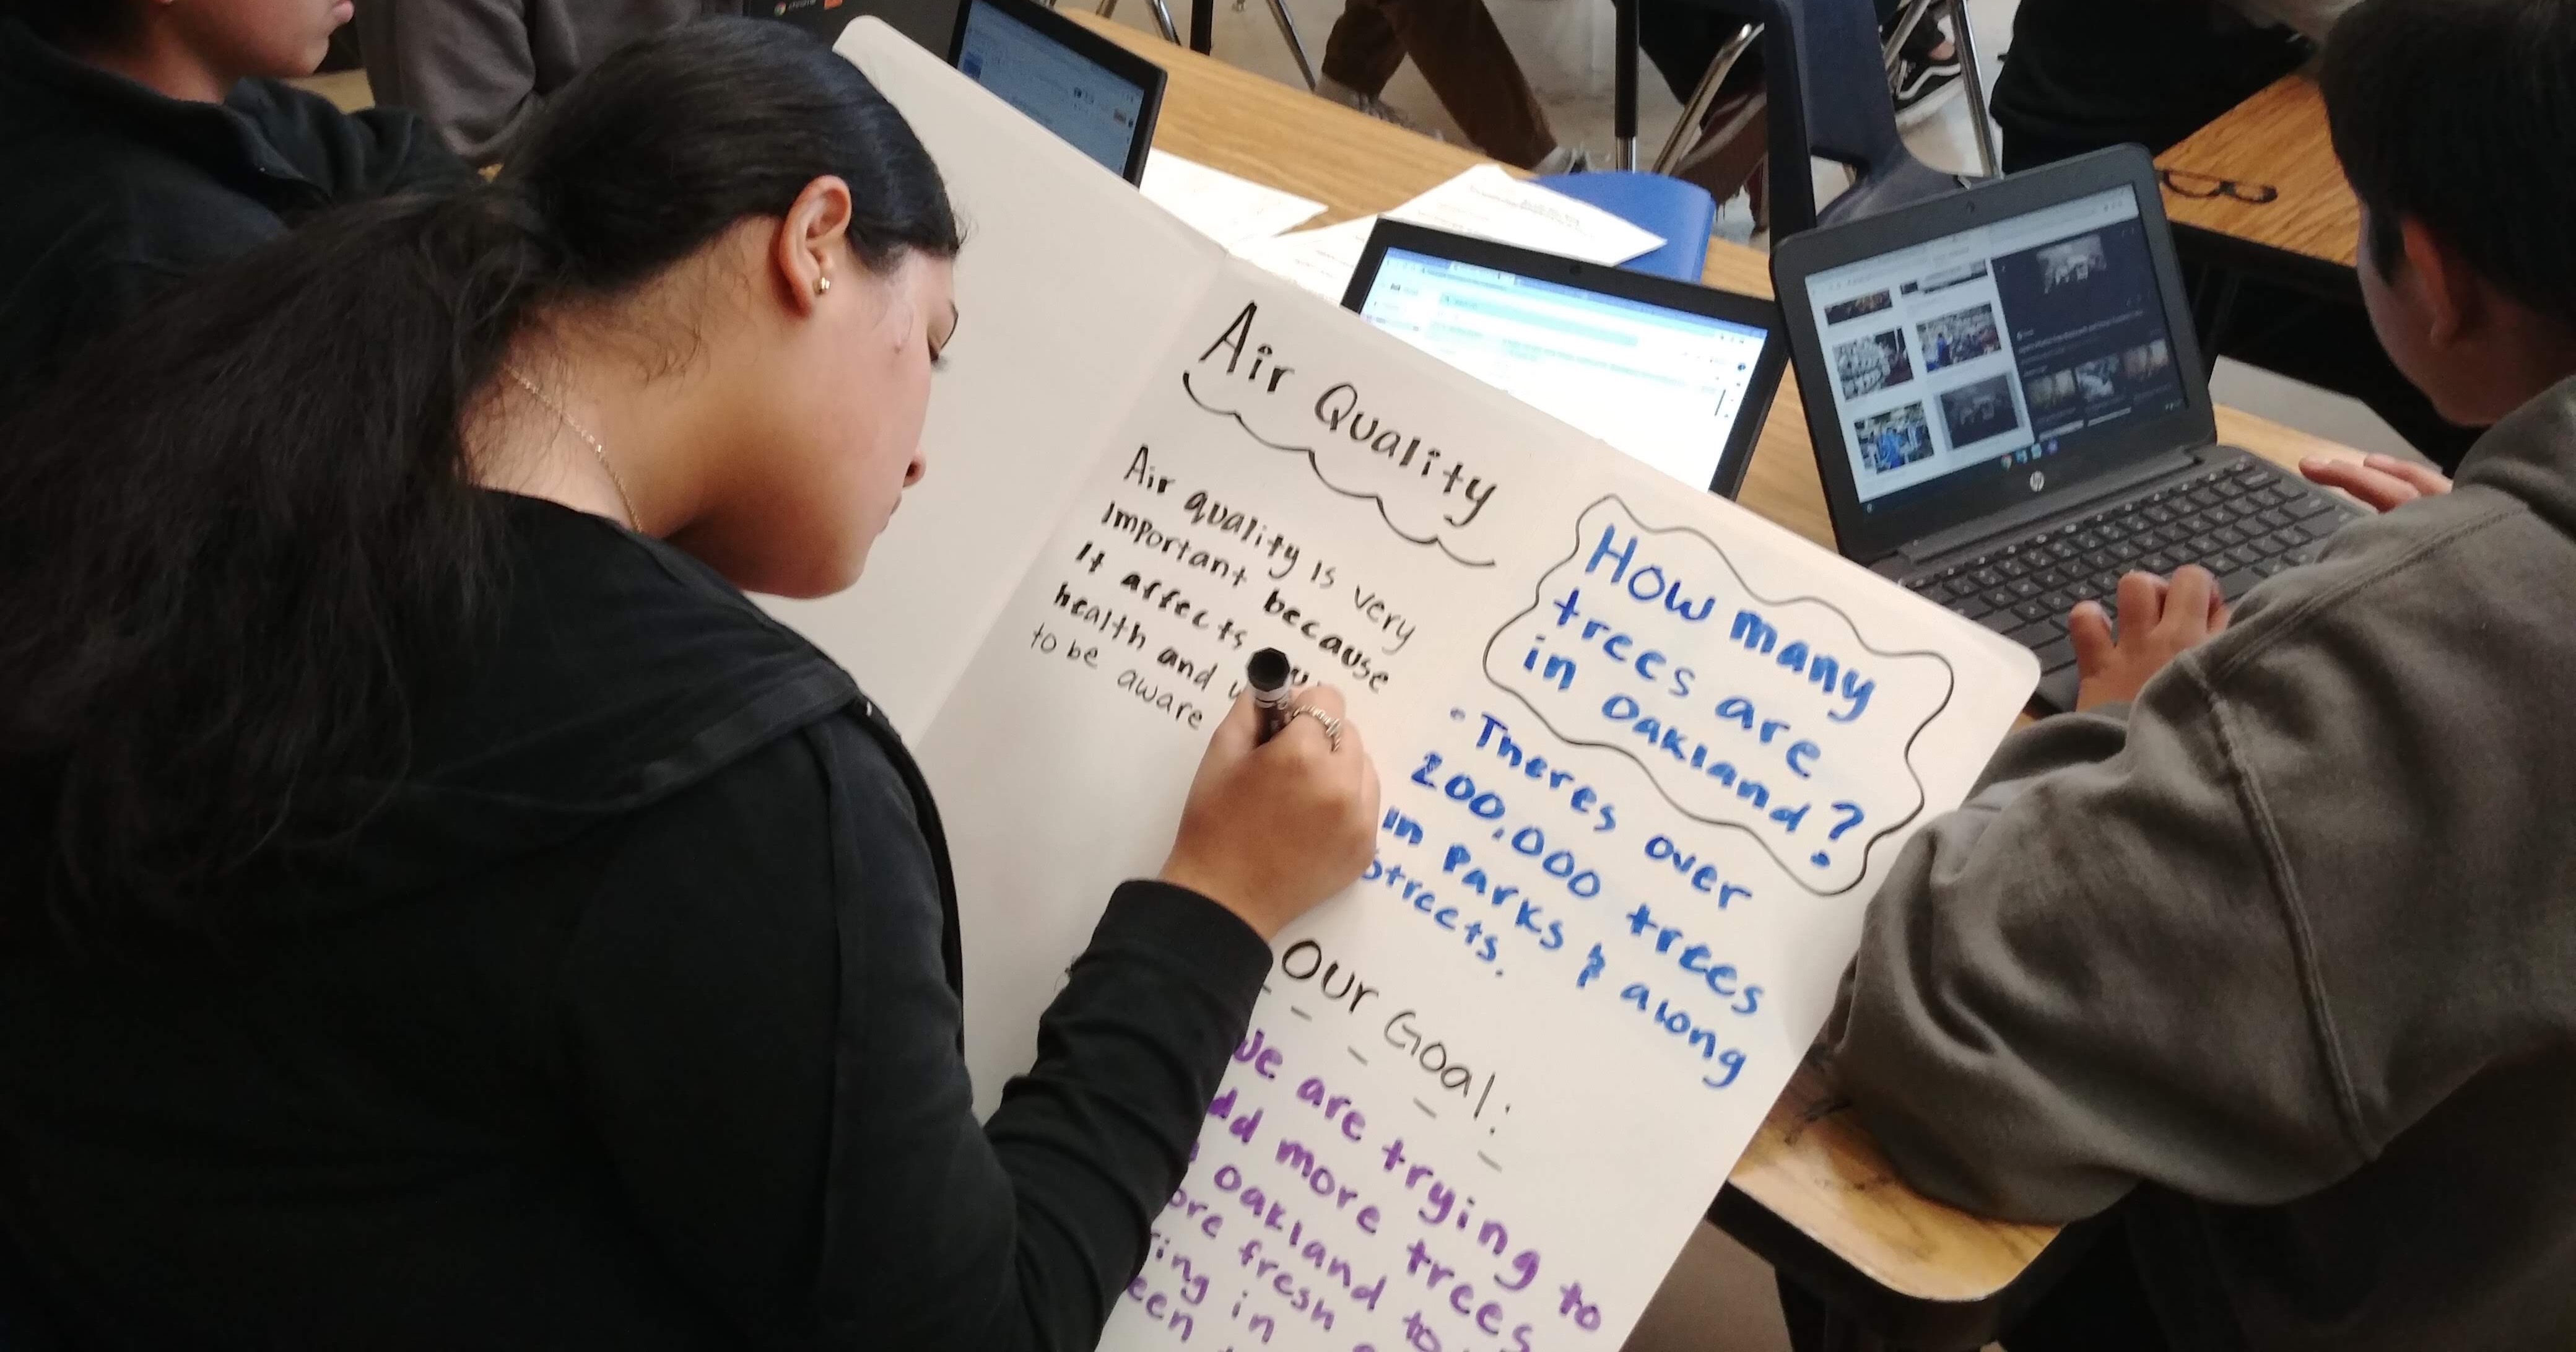 Air Quality
Air quality is very
important because
it affects
health and
to be aware
How many
trees are
in Oakland?
• Theres over
200,000 trees
in Parks & along
streets.
Our Goal:
we are trying to
add more trees
Oakland to
fresh
in
hp
chrome